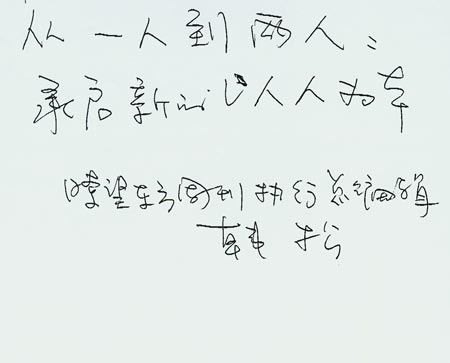 从一人到两人：
承启新的以人人为本
瞭望东方周刊执行总编辑
韩松